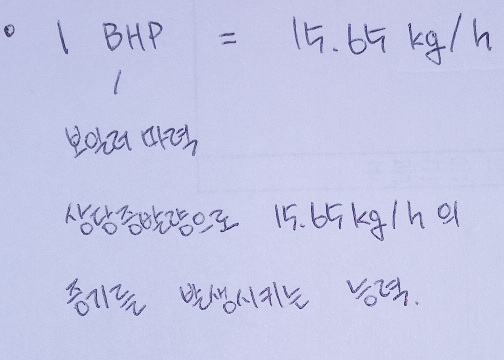 • 1 BHP = 15.65 kg/h
/
보일러 마력
상당증발량으로 15.65kg/h 의
증기를 발생시키는 능력.